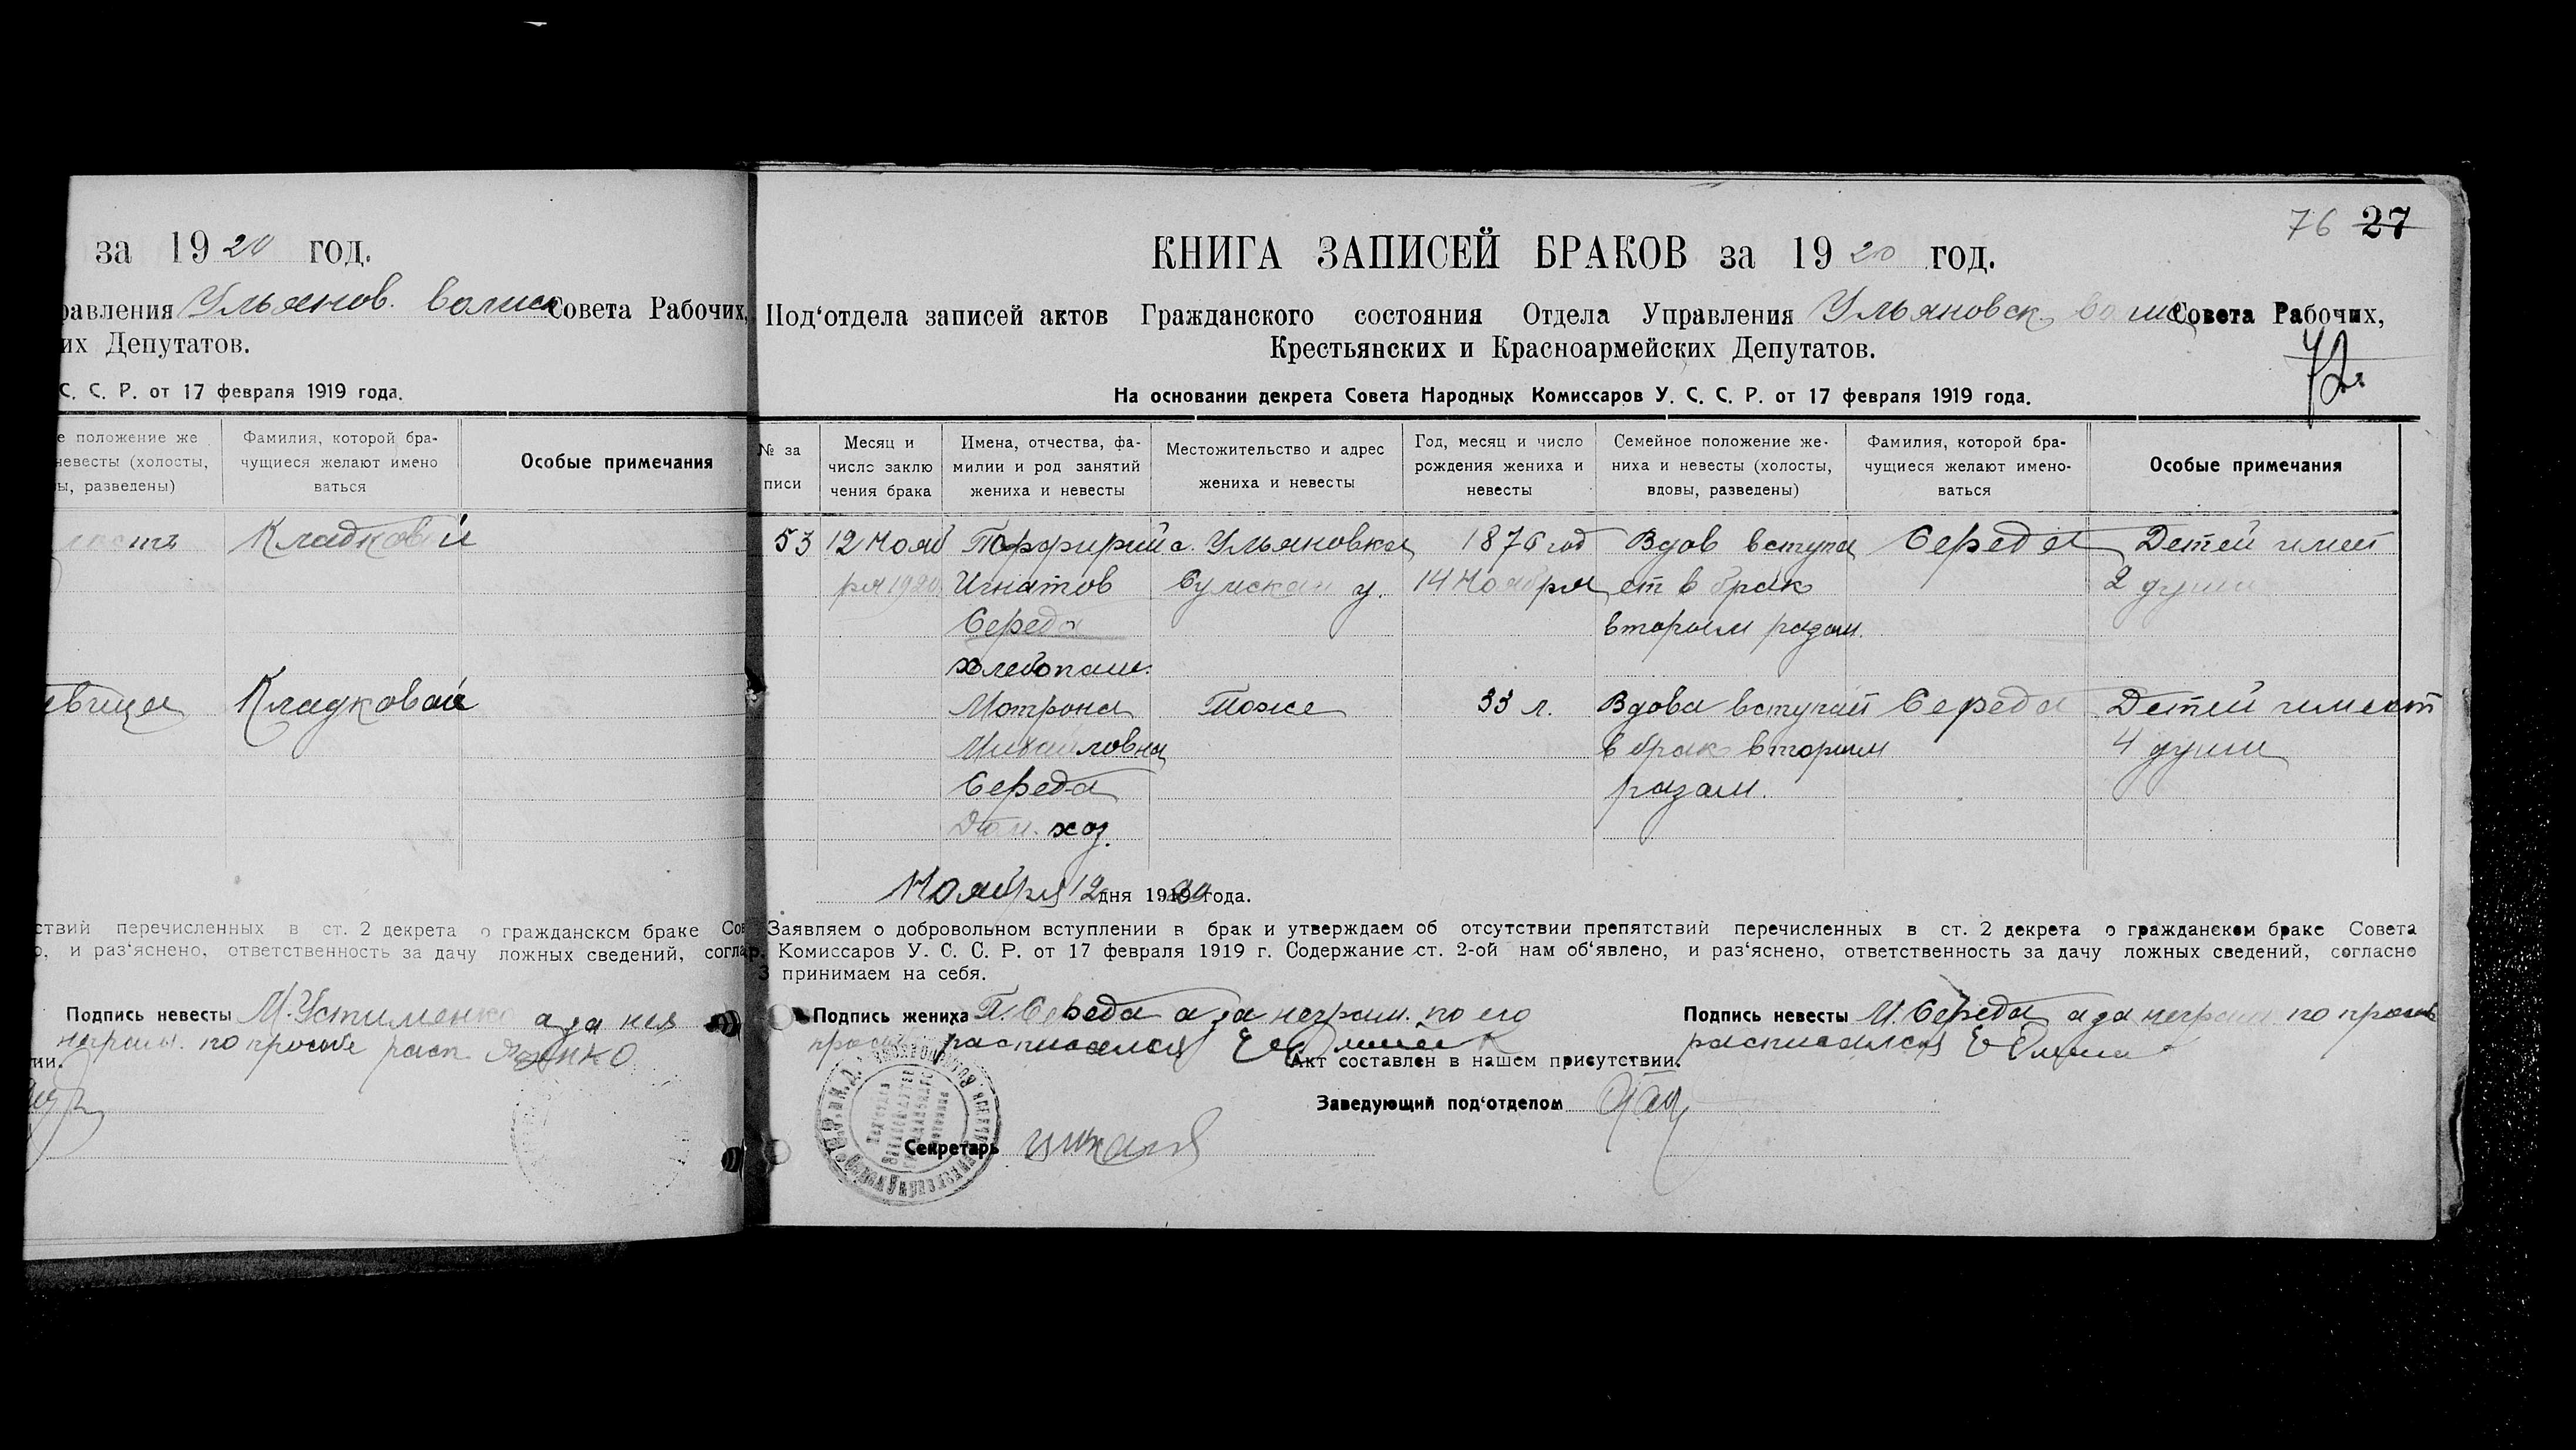 за 1920 год.
равления Ульянов. волисп Совета Рабочих,
их Депутатов.
С. С. Р. от 17 февраля 1919 года.
е положение же
невесты (холосты,
ы, разведены)
Фамилия, которой бра-
чущиеся желают имено
ваться
Особые примечания
Кладковой
Кладковая
ствий перечисленных в ст. 2 декрета о гражданском браке Сов
о, и раз'яснено, ответственность за дачу ложных сведений, соглас
Подпись невесты М. Устименко а за нея
неграм. по просьбе расп.
ии.
76 27
КНИГА ЗАПИСЕЙ БРАКОВ за 1920 год.
Под'отдела записей актов Гражданского состояния Отдела Управления Ульяновск. Совета Рабочих,
Крестьянских и Красноармейских Депутатов.
72
На основании декрета Совета Народных Комиссаров У. С. С. Р. от 17 февраля 1919 года.
№ за
писи
Месяц и
число заклю
чения брака
Имена, отчества, фа-
милии и род занятий
жениха и невесты
Местожительство и адрес
жениха и невесты
Год, месяц и число
рождения жениха и
невесты
Семейное положение же-
ниха и невесты (холосты,
вдовы, разведены)
Фамилия, которой бра-
чущиеся желают имено-
ваться
Особые примечания
53 12 Нояб Порфирий с. Ульяновка 1876 год Вдов вступа Середа Детей имеет
ря 1920 Игнатов Сумскаго у. 14 Ноября ет в брак 2 души
Середа вторым разом.
хлебопаш.
Мотрона Тоже 33 л. Вдова вступает Середа Детей имеет
Михайловна в брак вторым 4 души
Середа разом.
Дом. хоз.
Ноября 12 дня 1920 года.
Заявляем о добровольном вступлении в брак и утверждаем об отсутствии препятствий перечисленных в ст. 2 декрета о гражданском браке Совета
р. Комиссаров У. С. С. Р. от 17 февраля 1919 г. Содержание ст. 2-ой нам об'явлено, и раз'яснено, ответственность за дачу ложных сведений, согласно
3 принимаем на себя.
Подпись жениха П. Середа а за неграм. по его
расписался
Подпись невесты М. Середа а за неграм по прось
расписался
Акт составлен в нашем присутствии.
Заведующий под'отделом
Секретарь